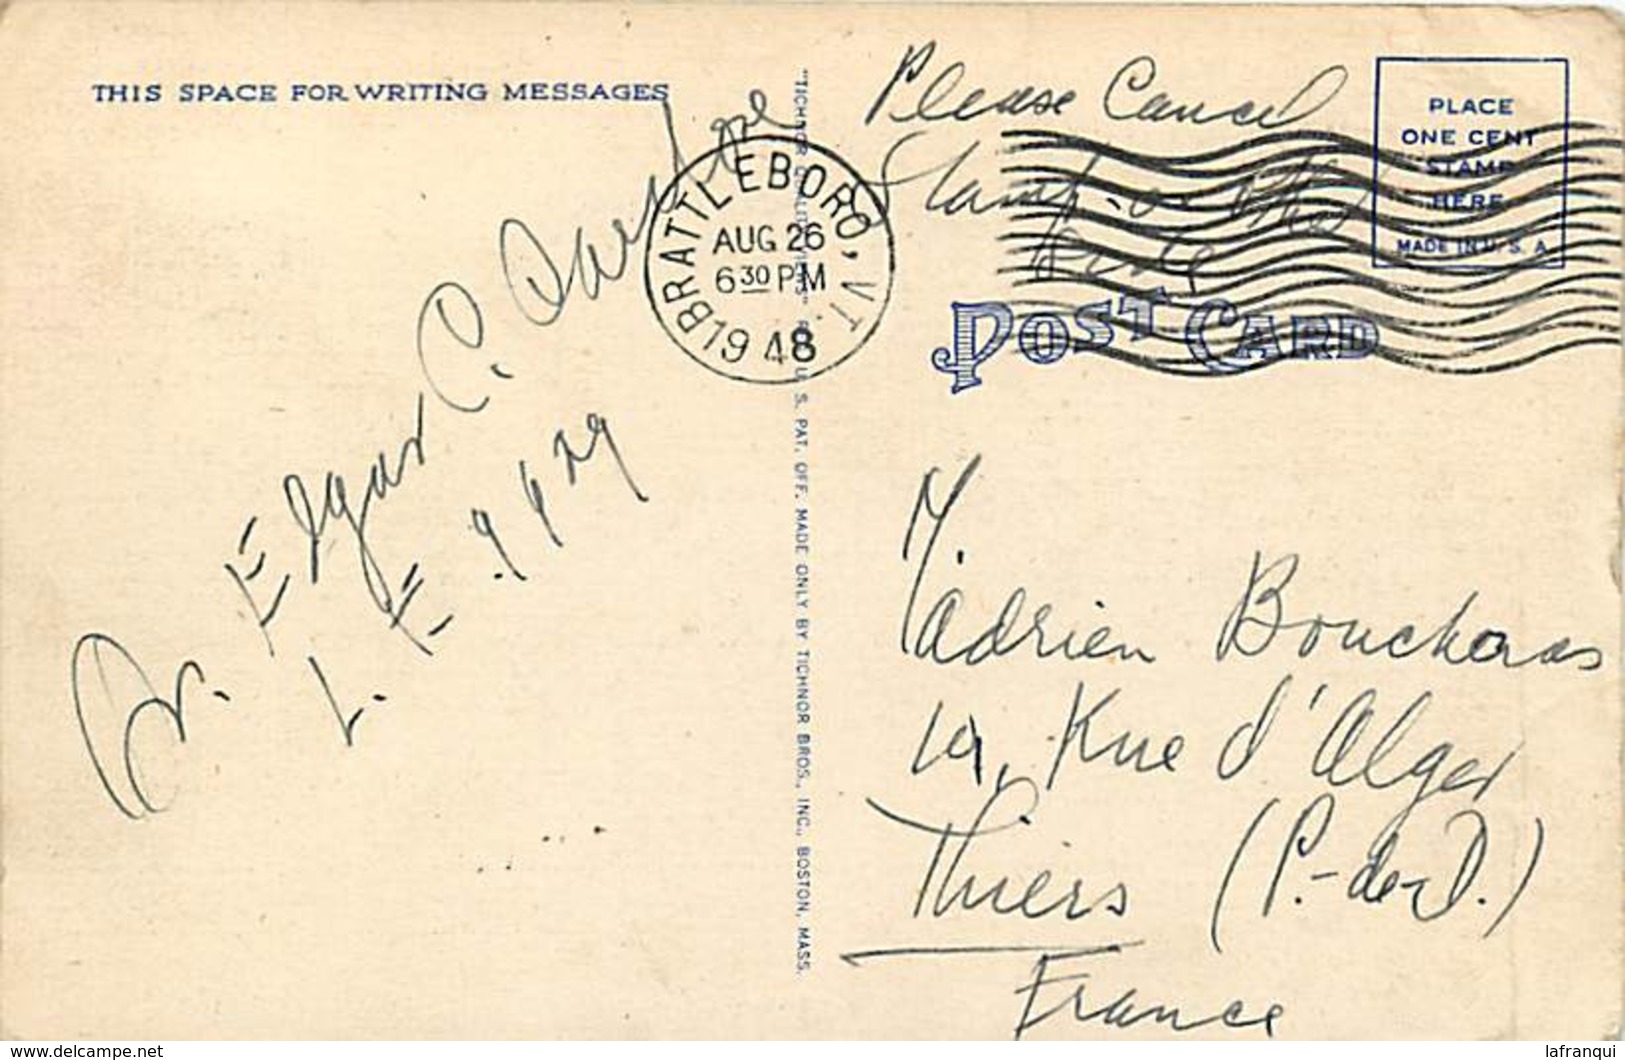 THIS SPACE FOR WRITING MESSAGES
Dr. Elgar C.
L. E. 9929
BRATTLEBORO, VT.
AUG 26
6 30 PM
1948
"TICHNOR QUALITY VIEWS" REG. U. S. PAT. OFF. MADE ONLY BY TICHNOR BROS., INC., BOSTON, MASS.
Please Cancel
Stamp on other
side
PLACE
ONE CENT
STAMP
HERE
MADE IN U. S. A.
POST CARD
M. Adrien Boucharas
19, Rue d'Alger
Thiers (P.-de-D.)
France
delcampe.net
lafranqui